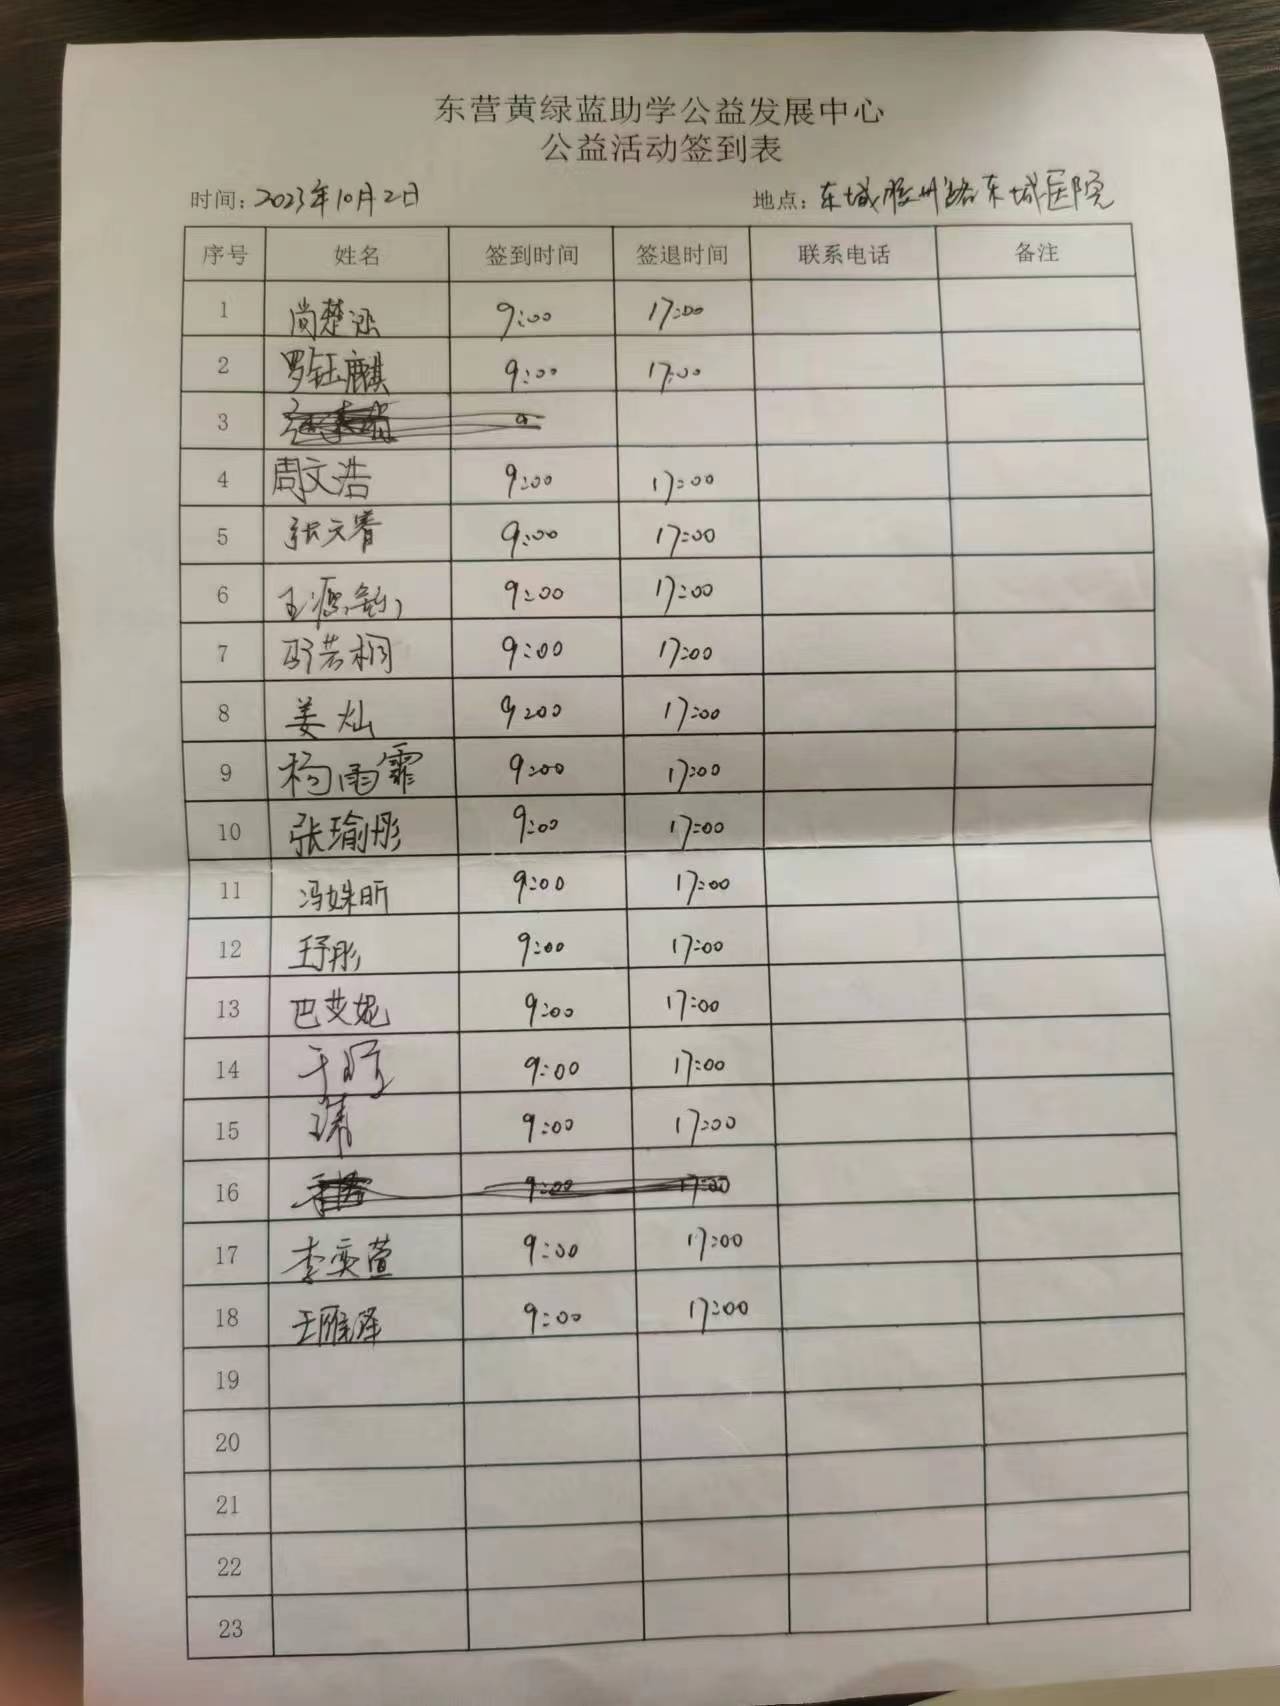 东营黄绿蓝助学公益发展中心
公益活动签到表
时间：2023年10月2日 地点：东城胶州路东城医院
序号 姓名 签到时间 签退时间 联系电话 备注
1 尚楚涵 9:00 17:00
2 罗钰麒 9:00 17:00
3
4 周文浩 9:00 17:00
5 张文睿 9:00 17:00
6 王 9:00 17:00
7 若桐 9:00 17:00
8 姜灿 9:00 17:00
9 杨雨霏 9:00 17:00
10 张瑜彤 9:00 17:00
11 冯姝昕 9:00 17:00
12 王予彤 9:00 17:00
13 巴艾妮 9:00 17:00
14 9:00 17:00
15 9:00 17:00
16 9:00 17:00
17 李奕萱 9:00 17:00
18 王雁泽 9:00 17:00
19
20
21
22
23